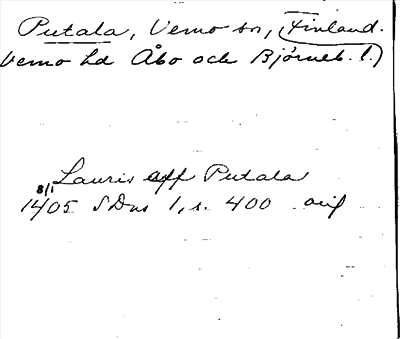 Putala, Vemo sn, (Finland.
Vemo hd Åbo och Björneb. l.)
Lauris aff Putala
8/1
1405 SDns 1, s. 400 orig